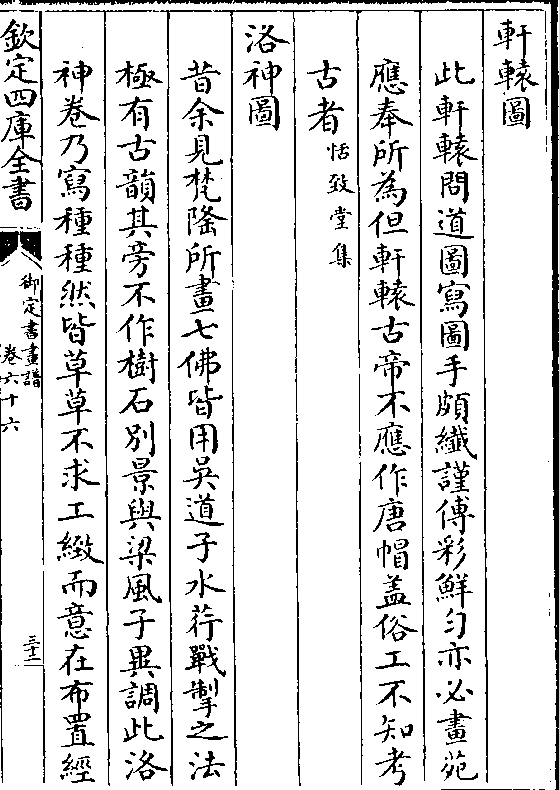 軒轅圖
此軒轅問道圖寫圖手頗纎謹傅彩鮮匀亦必畫苑
應奉所為但軒轅古帝不應作唐帽盖俗工不知考
古者恬致堂集
洛神圖
昔余見梵隆所畫七佛皆用吳道子水荇戰掣之法
極有古韻其旁不作樹石别景與梁風子異調此洛
神卷乃寫種種然皆草草不求工緻而意在布置經
欽定四庫全書
御定書畫譜
卷六十六
三十二